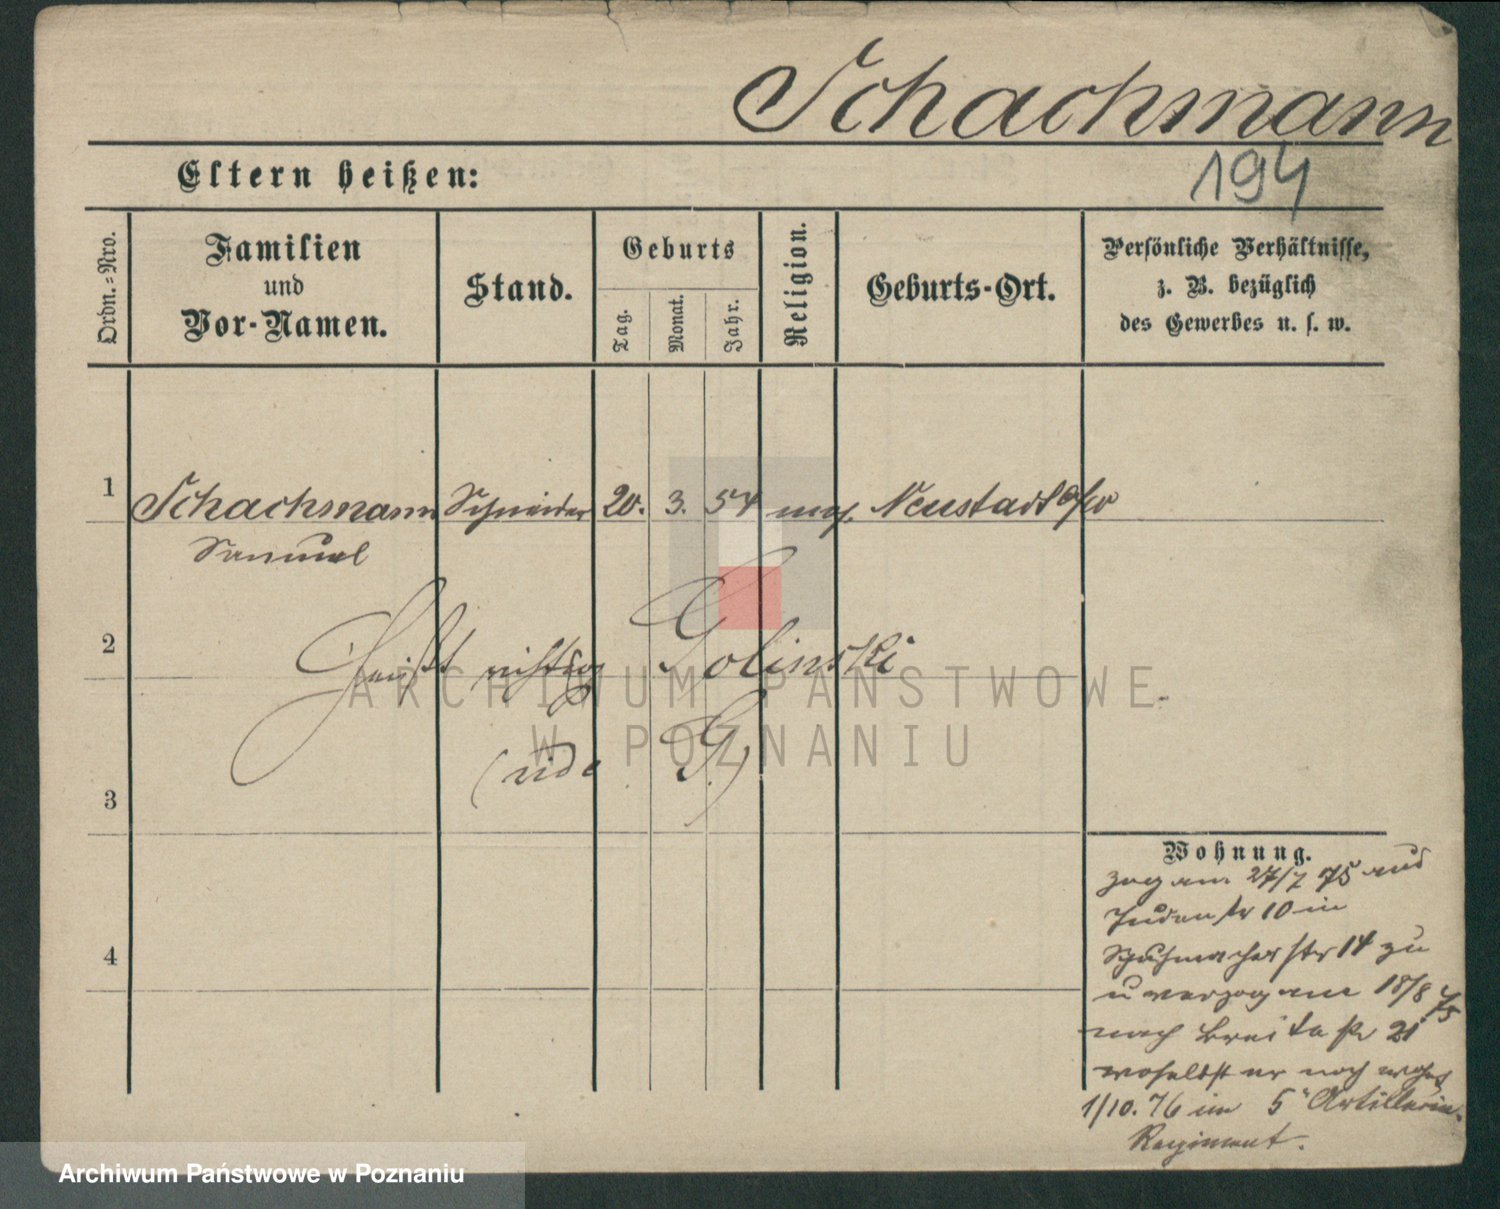 Schachmann
194
Eltern heißen:
Ordn.-Nro.
Familien
und
Vor-Namen.
Stand.
Geburts
Tag.
Monat.
Jahr.
Religion.
Geburts-Ort.
Persönliche Verhältnisse,
z. B. bezüglich
des Gewerbes u. s. w.
1
Schachmann Schneider 20. 3. 54 mos. Neustadt
Samuel
2
Heißt richtig Golinski
(vide G.)
3
4
Wohnung.
zog am 27/7 75 aus
Judenstr 10 in
Schuhmacherstr 14 zu
u verzog am 18/8 75
nach Breitestr 21
woselbst er noch wohnt
1/10. 76 im 5 Artillerie-
Regiment.
ARCHIWUM PAŃSTWOWE
W POZNANIU
Archiwum Państwowe w Poznaniu